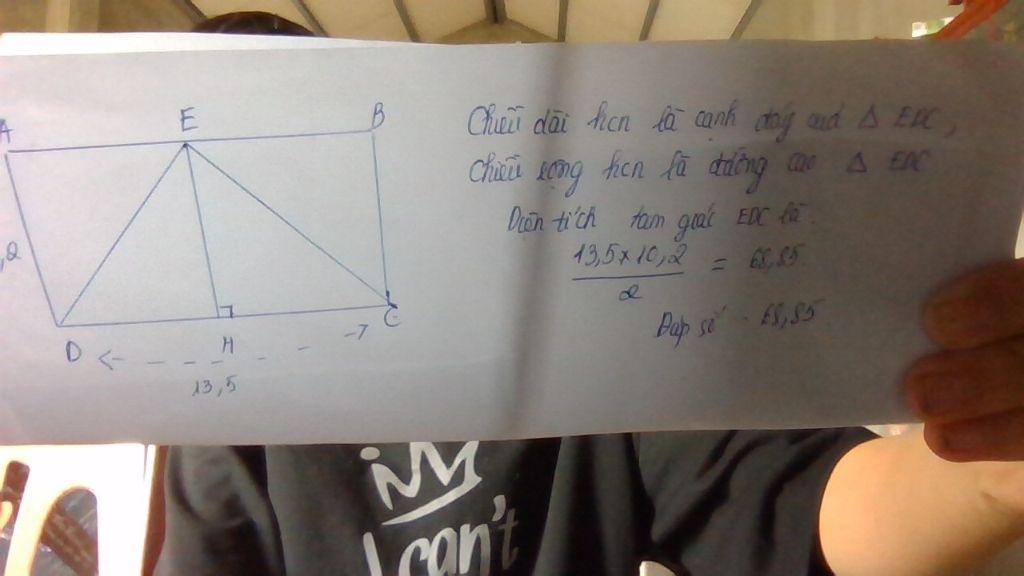 A
E
B
,2
D
H
C
13,5
Chiều dài hcn là cạnh đáy cuả Δ EDC,
Chiều rộng hcn là đường cao Δ EDC
Diện tích tam giác EDC là:
13,5 x 10,2
2
= 68,85
Đáp số: 68,85
I can't